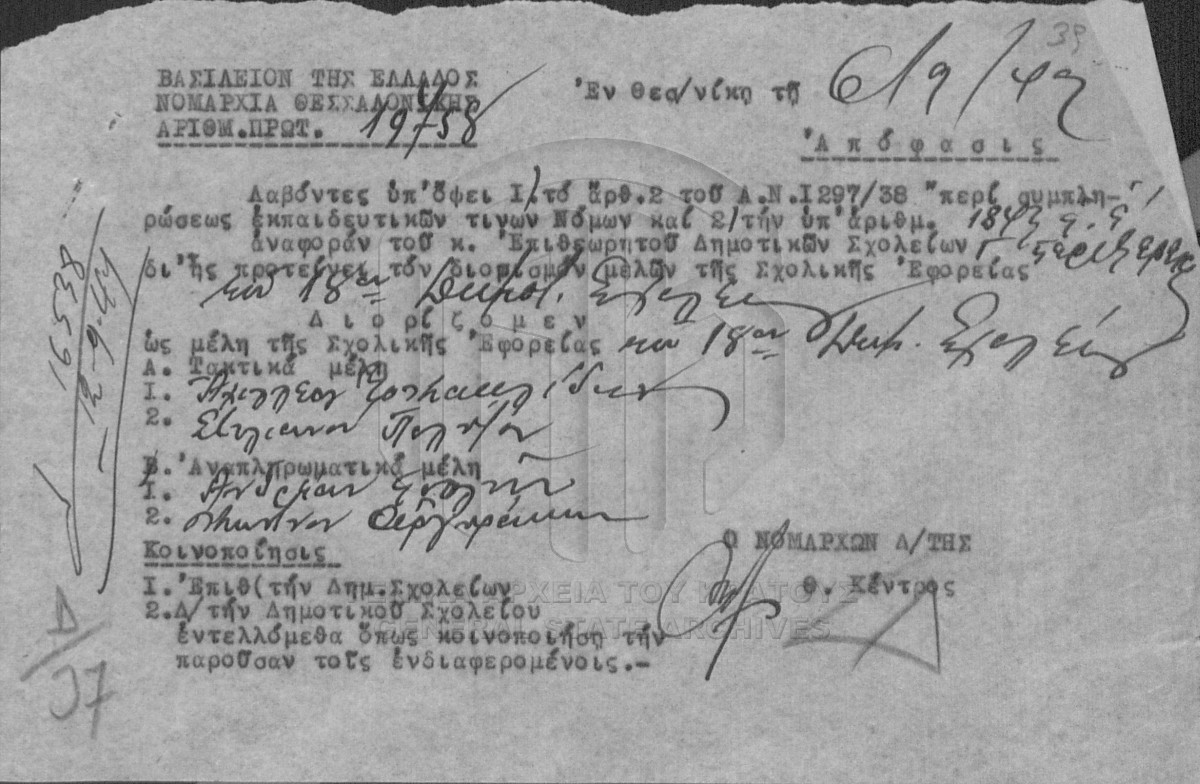 39
ΒΑΣΙΛΕΙΟΝ ΤΗΣ ΕΛΛΑΔΟΣ
ΝΟΜΑΡΧΙΑ ΘΕΣΣΑΛΟΝΙΚΗΣ
ΑΡΙΘΜ.ΠΡΩΤ. 19758
Ἐν Θεσ/νίκῃ τῇ 6/9/47
Ἀπόφασις
Λαβόντες ὑπ'ὄψει Ι/.τό ἄρθ.2 τοῦ Α.Ν.Ι297/38 "περί συμπλη-
ρώσεως ἐκπαιδευτικῶν τινων Νόμων καί 2/τήν ὑπ'ἀριθμ.
ἀναφοράν τοῦ κ. Ἐπιθεωρητοῦ Δημοτικῶν Σχολείων Γ
δι'ἧς προτείνει τόν διορισμόν μελῶν τῆς Σχολικῆς Ἐφορείας
του 18ου Δημοτ. Σχολείου
Διορίζομεν
ὡς μέλη τῆς Σχολικῆς Ἐφορείας του 18ου Δημ. Σχολείου
Α. Τακτικά μέλη
Ι.
2. Στυλιανον
Β. Ἀναπληρωματικά μέλη
Ι. Ἀνδρέαν
2.
Κοινοποίησις
Ι. Ἐπιθ(τήν Δημ.Σχολείων
2.Δ/τήν Δημοτικοῦ Σχολείου
ἐντελλόμεθα ὅπως κοινοποιήσῃ τήν
παροῦσαν τοῖς ἐνδιαφερομένοις.-
Ο ΝΟΜΑΡΧΩΝ Δ/ΤΗΣ
Θ. Κέντρος
16538
12-9-47
Δ/37
ΑΡΧΕΙΑ ΤΟΥ ΚΡΑΤΟΥΣ
GENERAL STATE ARCHIVES